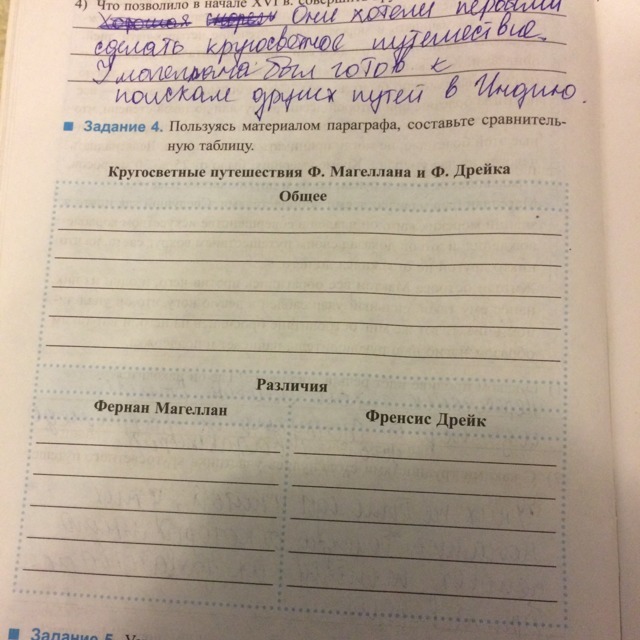 4) Что позволило в начале XVI в. совершить
Хорошая Они хотели первыми
сделать кругосветное путешествие.
У магеллана был готов к
поискам других путей в Индию.
Задание 4. Пользуясь материалом параграфа, составьте сравнитель-
ную таблицу.
Кругосветные путешествия Ф. Магеллана и Ф. Дрейка
Общее
Различия
Фернан Магеллан
Френсис Дрейк
Задание 5.